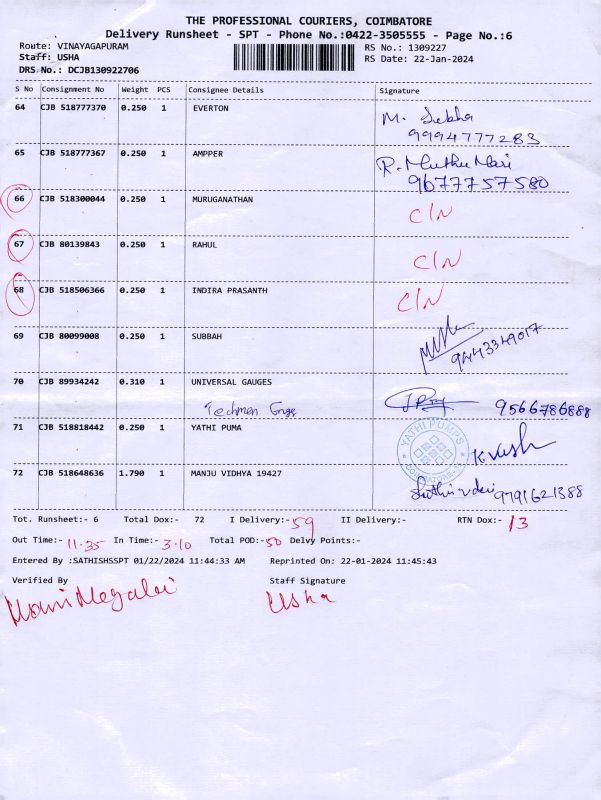 THE PROFESSIONAL COURIERS, COIMBATORE
Delivery Runsheet - SPT - Phone No.:0422-3505555 - Page No.:6
Route: VINAYAGAPURAM RS No.: 1309227
Staff: USHA RS Date: 22-Jan-2024
DRS No.: DCJB130922706
S No Consignment No Weight PCS Consignee Details Signature
64 CJB 518777370 0.250 1 EVERTON M.
9994777283
65 CJB 518777367 0.250 1 AMPPER R. Muthu Mari
9677757580
66 CJB 518300044 0.250 1 MURUGANATHAN C/N
67 CJB 80139843 0.250 1 RAHUL C/N
68 CJB 518506366 0.250 1 INDIRA PRASANTH C/N
69 CJB 80099008 0.250 1 SUBBAH
9443349017
70 CJB 89934242 0.310 1 UNIVERSAL GAUGES
Techmen Engg 9566786888
71 CJB 518818442 0.250 1 YATHI PUMA YATHI PUMPS COIMBATORE
72 CJB 518648636 1.790 1 MANJU VIDHYA 19427
9791621388
Tot. Runsheet:- 6 Total Dox:- 72 I Delivery:- 59 II Delivery:- RTN Dox:- 13
Out Time:- 11.35 In Time:- 3.10 Total POD:- 50 Delvy Points:-
Entered By :SATHISHSSPT 01/22/2024 11:44:33 AM Reprinted On: 22-01-2024 11:45:43
Verified By Staff Signature
Usha